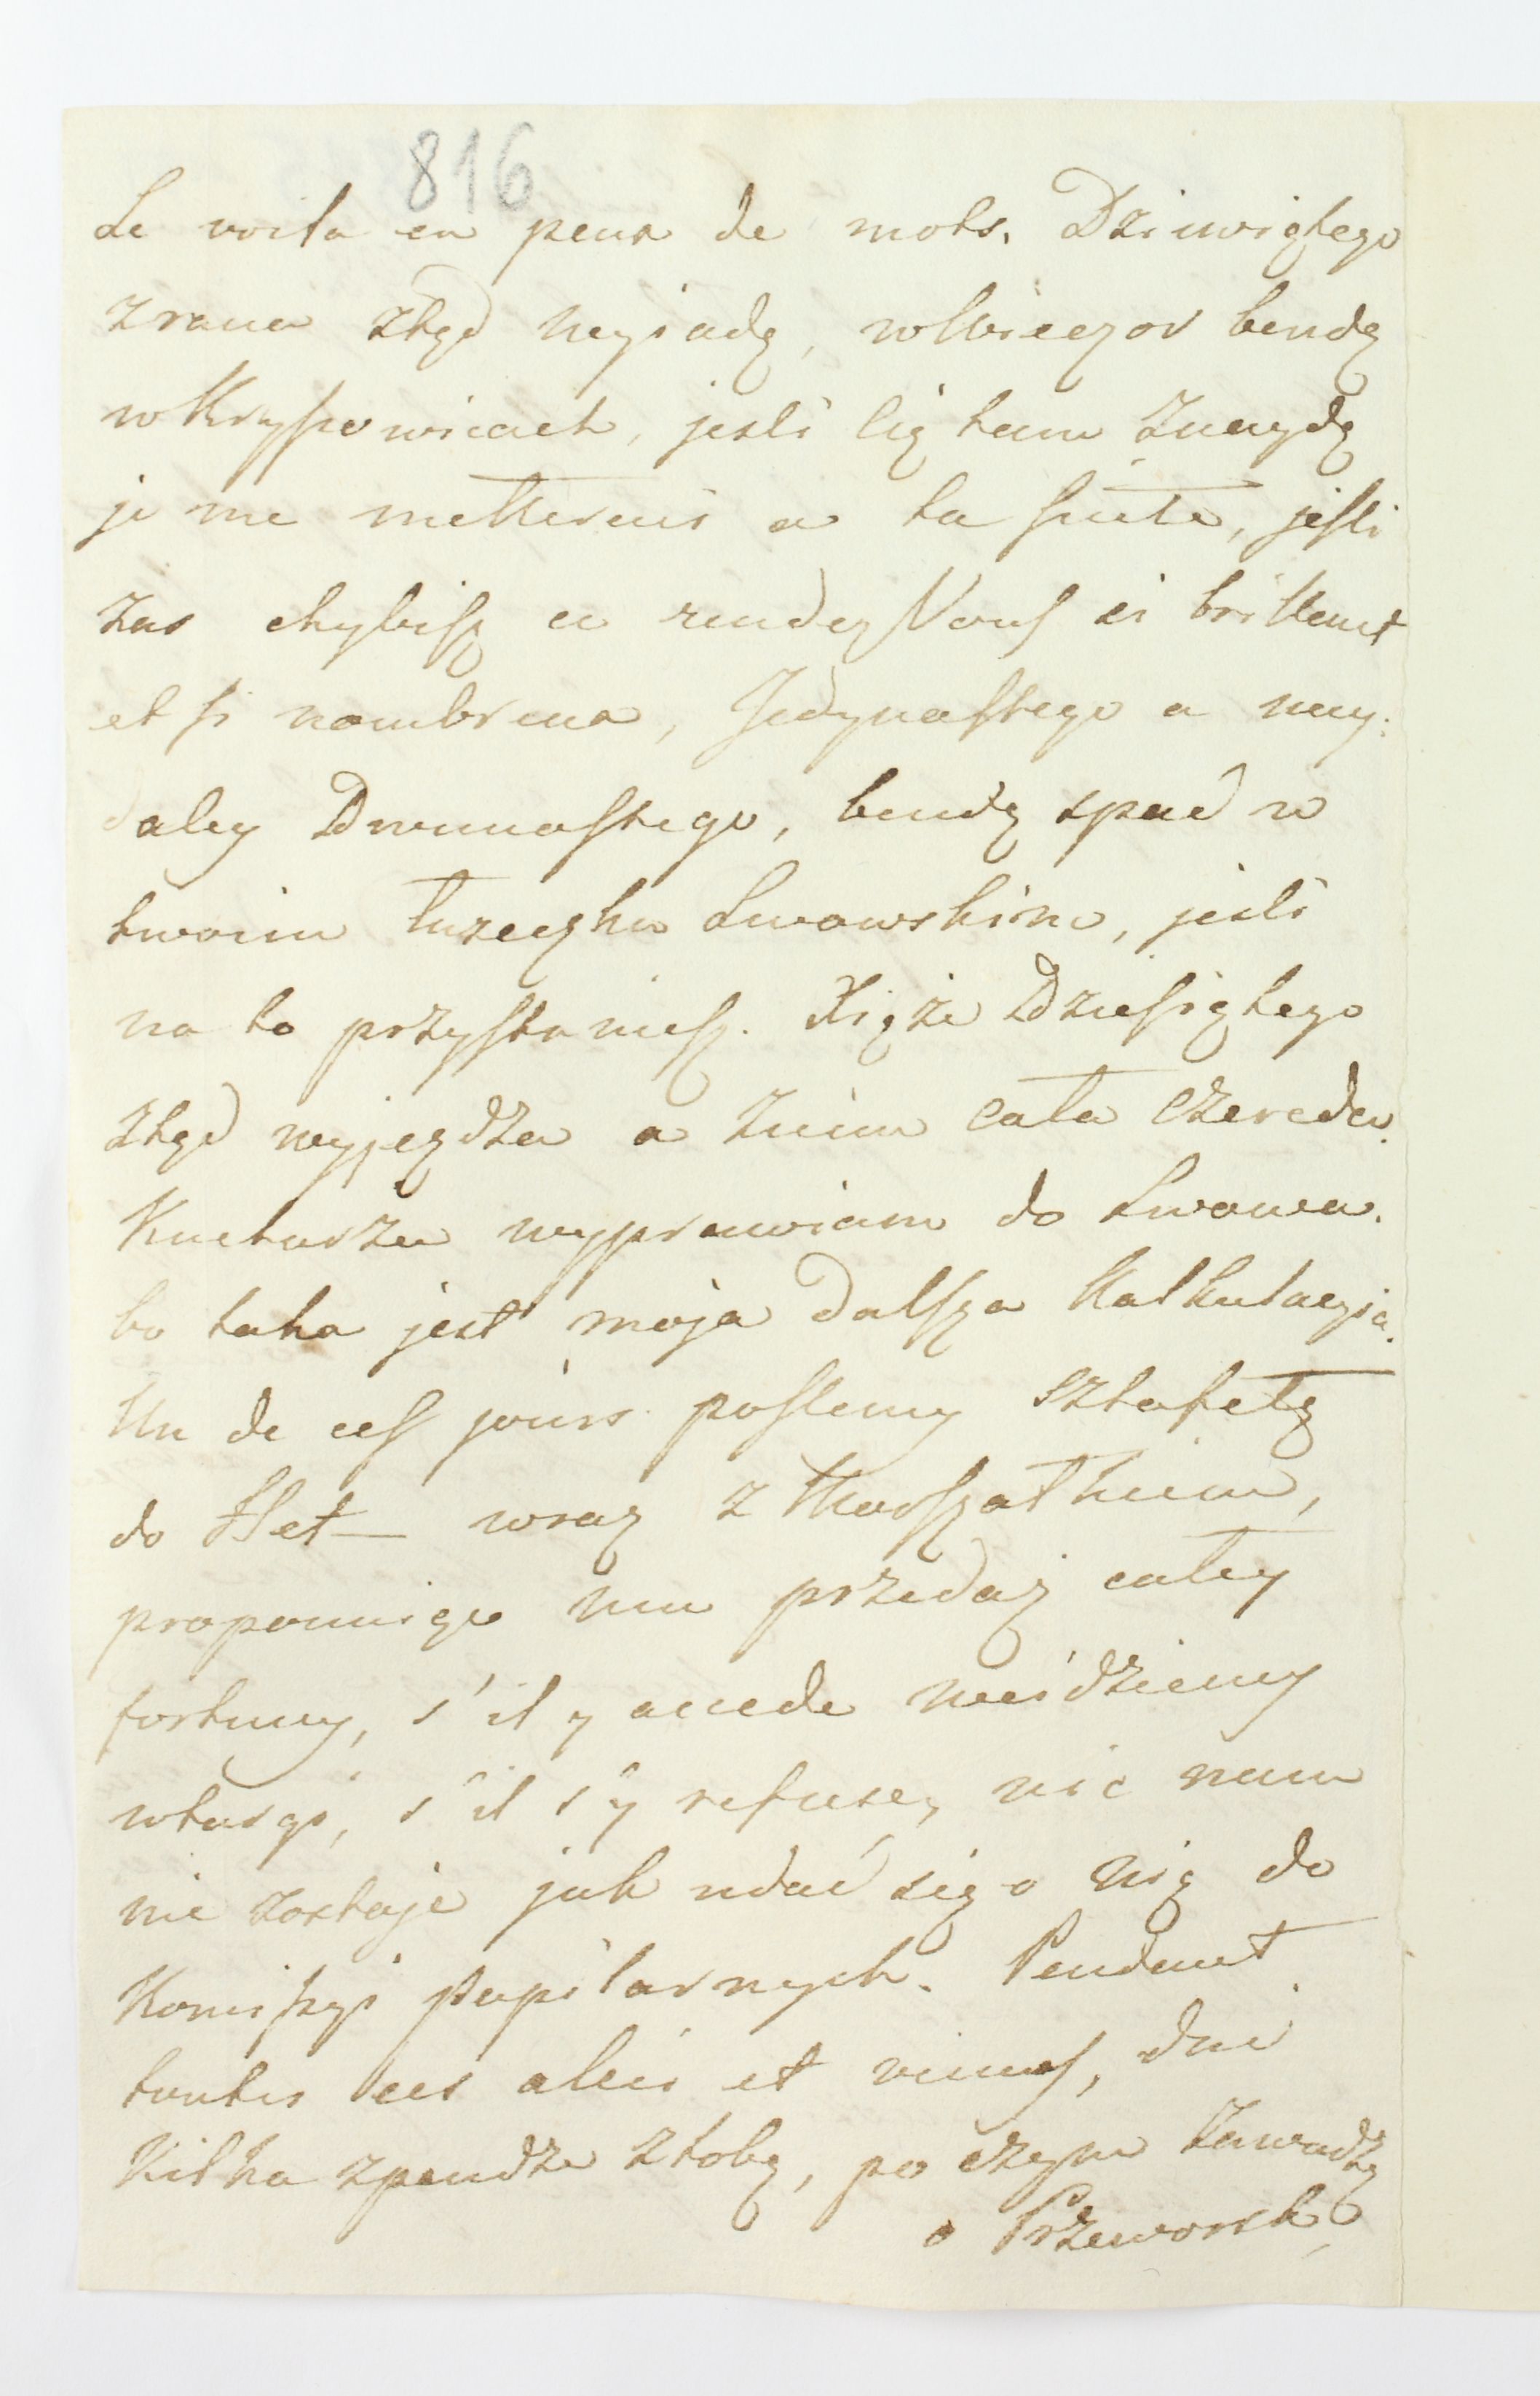 816
Le voila en peux de mots. Dziewiątego
zrana ztąd wyiadę, wWieczor bendę
w Krysowicach, jesli Cię tam Znaydę
je me metterais a ta suite, jesli
zas chybisz ce rendez Vous si brillant
et si nombreux, Jedynastego a nay:
daley Dwunastego, bendę spać w
twoim łuzeczku Lwowskim, jesli
na to przystaniesz. Xiąże Dziesiątego
ztąd wyjeżdża a znim cała czereda.
Kucharza wyprawiam do Lwowa.
bo taka jest moja dalsza Kalkulacyia.
Un de ces jours poslemy sztafetę
do Het— wraz z Marszałkiem,
proponuiąc mu przedaż całey
fortuny, s'il y accede weidziemy
wtargi, s'il s'y refuse, nic nam
nie zostaje jak udać się o nią do
Komissyi pupilarnych. Pendant
toutes ces alées et venues, dni
Kilka zpendze ztobą, po czym Zawadzę
o Przeworsk,